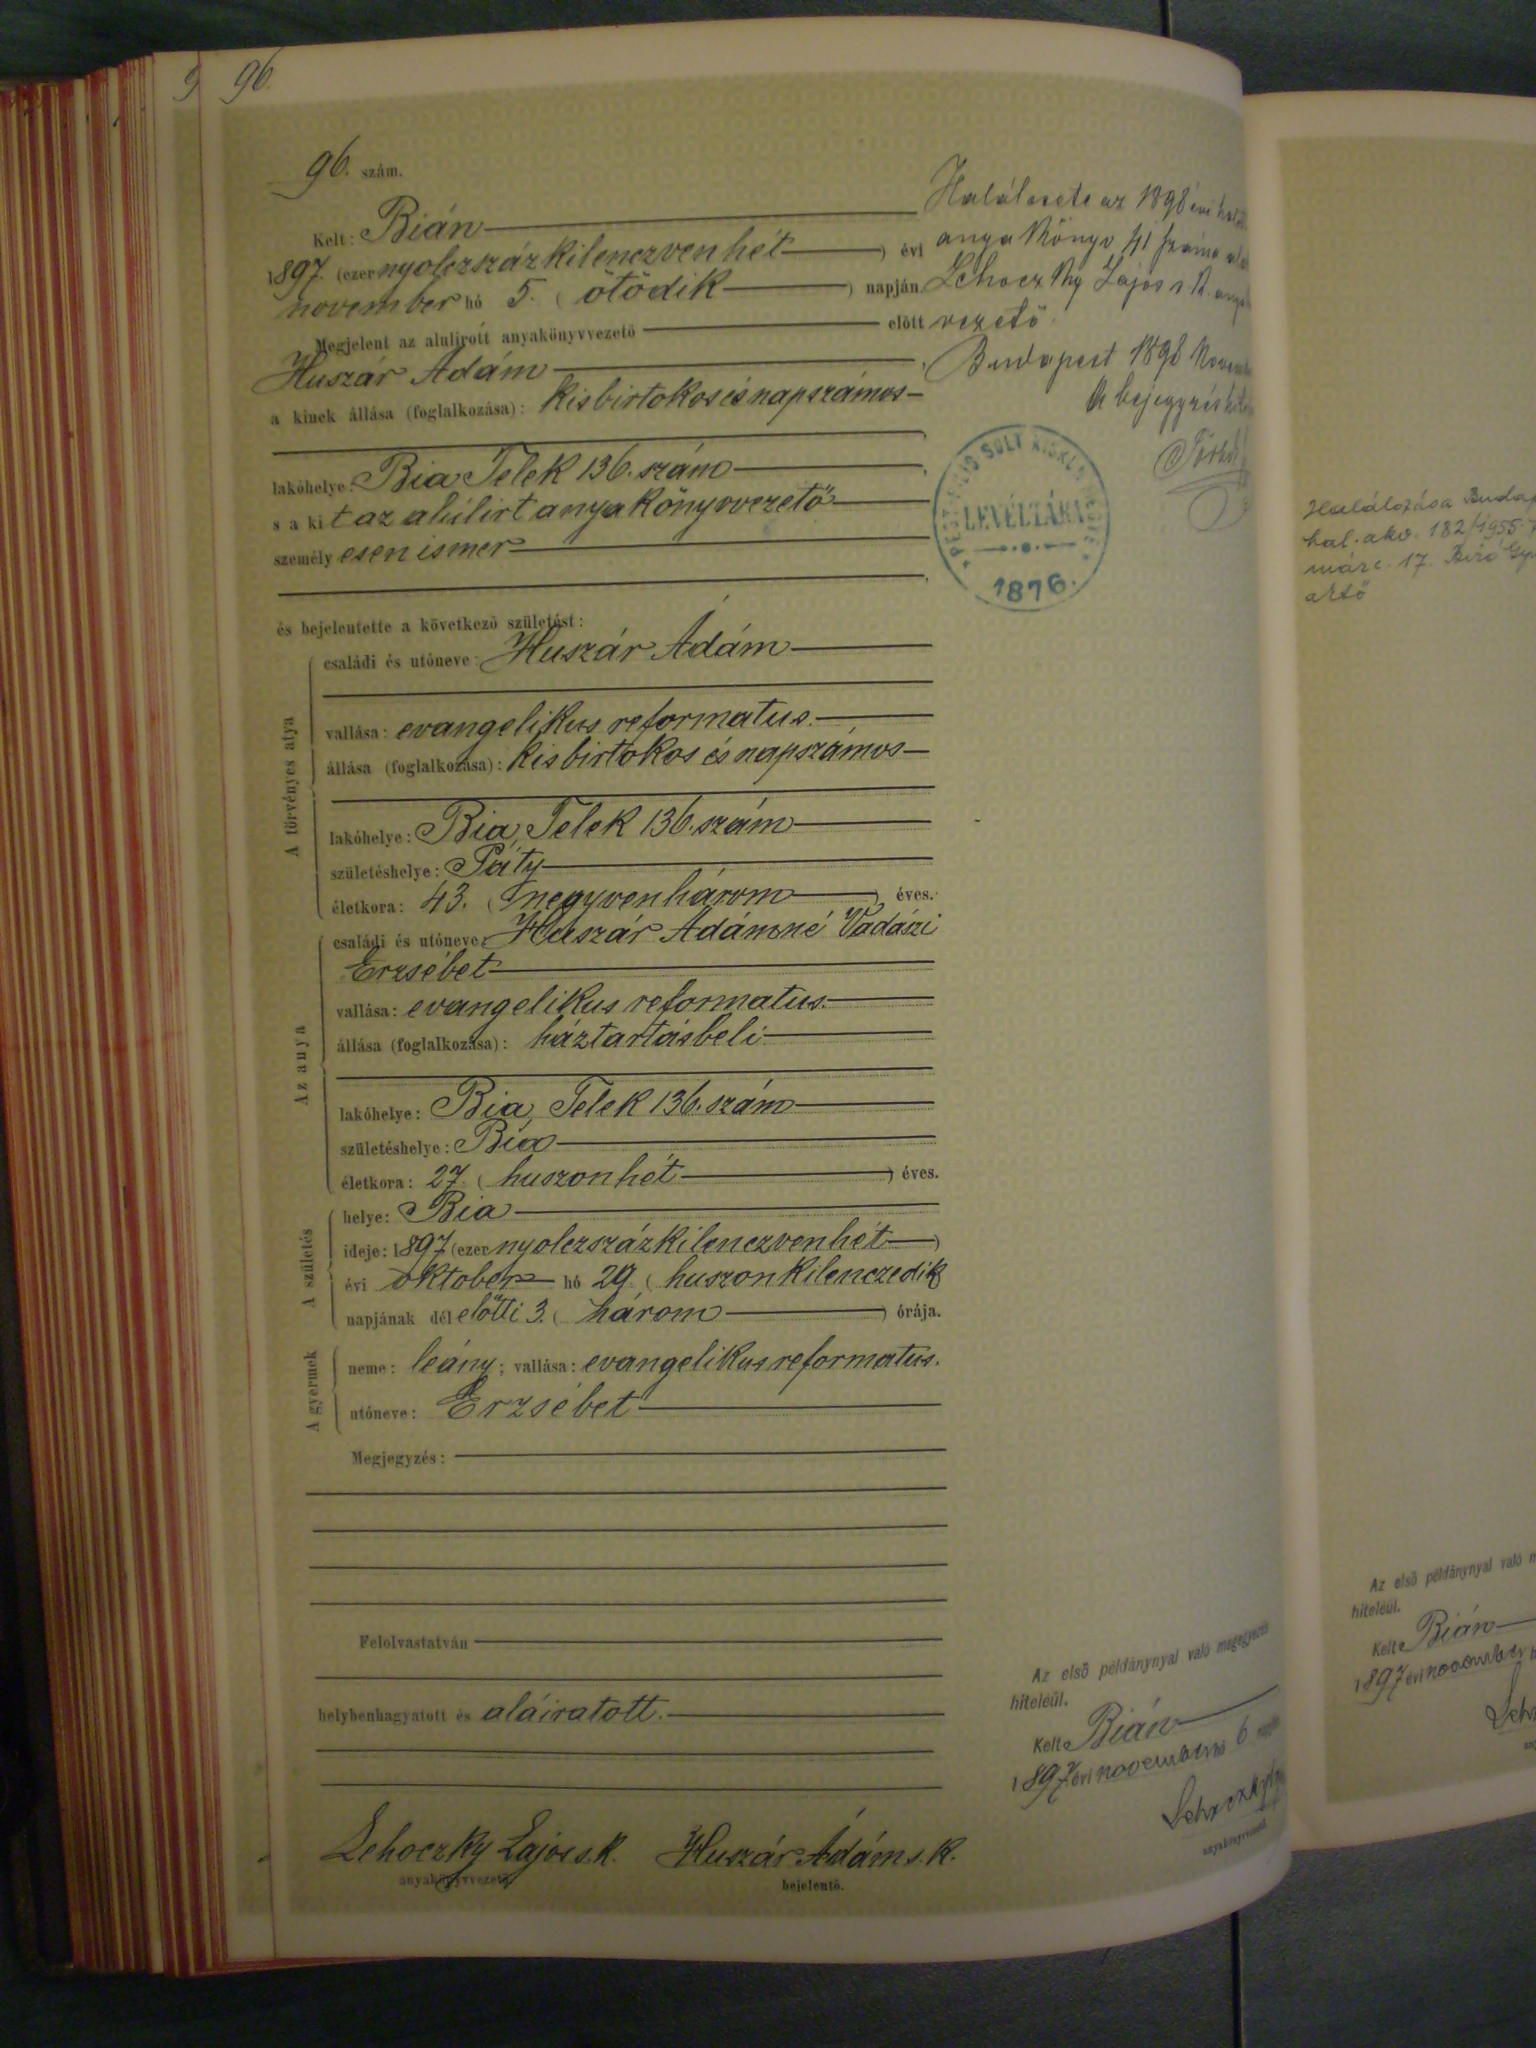 9 96.
96. szám.
Kelt: Bián
1897. (ezer nyolczszázkilenczvenhét ) évi
november hó 5. ( ötödik ) napján
Megjelent az alulirott anyakönyvvezető előtt
Huszár Ádám
a kinek állása (foglalkozása): kisbirtokos és napszámos
lakóhelye: Bia Telek 136. szám
s a kit az alúlirt anyakönyvvezető
személyesen ismer
és bejelentette a következő születést:
A törvényes atya
családi és utóneve: Huszár Ádám
vallása: evangelikus reformatus.
állása (foglalkozása): kisbirtokos és napszámos
lakóhelye: Bia, Telek 136. szám
születéshelye: Páty
életkora: 43. ( negyvenhárom ) éves.
Az anya
családi és utóneve: Huszár Ádámné Vadászi
Erzsébet
vallása: evangelikus reformatus.
állása (foglalkozása): háztartásbeli
lakóhelye: Bia, Telek 136. szám
születéshelye: Bia
életkora: 27. ( huszonhét ) éves.
A születés
helye: Bia
ideje: 1897 (ezer nyolczszázkilenczvenhét )
évi oktober hó 29. ( huszonkilenczedik
napjának dél előtti 3. ( három ) órája.
A gyermek
neme: leány; vallása: evangelikus reformatus.
utóneve: Erzsébet
Megjegyzés:
Felolvastatván
helybenhagyatott és aláiratott.
Lehoczky Lajos s.k. Huszár Ádám s.k.
anyakönyvvezető. bejelentő.
Halálesete az 1898 évi
anyakönyv
Lehoczky Lajos s.k.
vezető.
Budapest 1898
A bejegyzés
LEVÉLTÁRA
1876.
Az első példánynyal való megegyezés
hiteléül.
Kelt Bián
1897 évi november hó 6
Lehoczky
anyakönyvvezető
Halálozása
hal. akv. 182/1955.
márc. 17. Biró
aktő
Az első példánynyal való
hiteléül.
Kelt Bián
1897 évi november